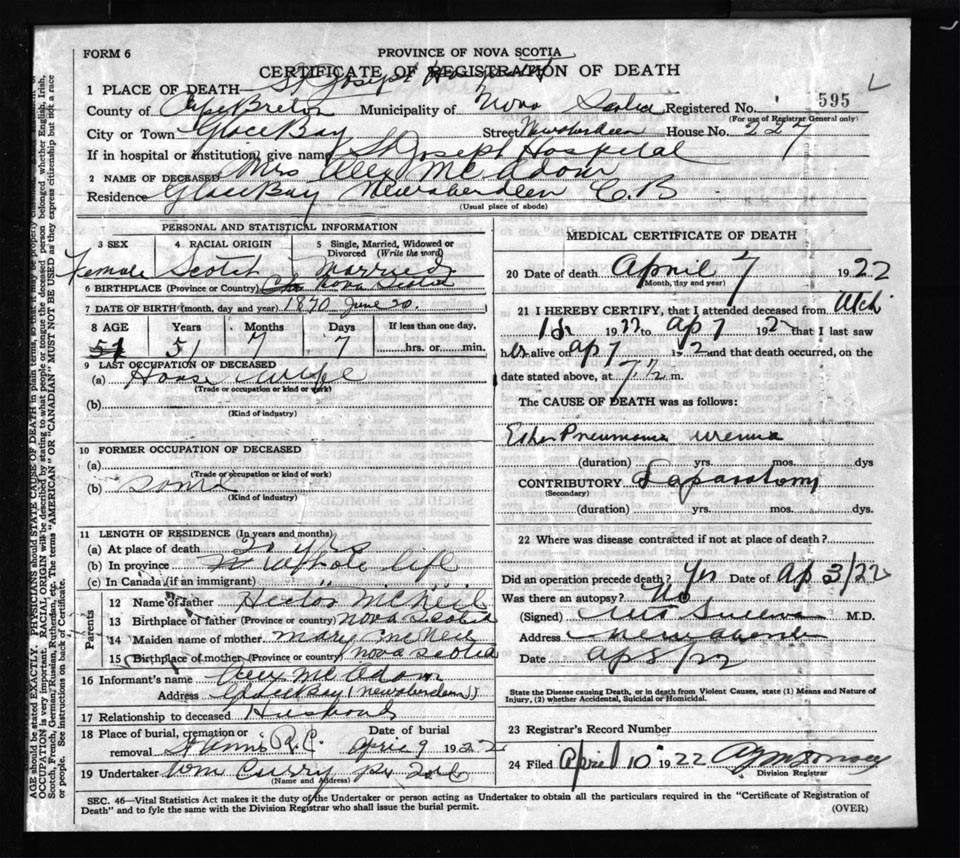 FORM 6
PROVINCE OF NOVA SCOTIA
CERTIFICATE OF REGISTRATION OF DEATH
1 PLACE OF DEATH St Joseph Hospital
County of Cape Breton Municipality of Nova Scotia Registered No. 595
(For use of Registrar General only)
City or Town Glace Bay Street Newaberdeen House No. 227
If in hospital or institution, give name St Joseph Hospital
2 NAME OF DECEASED Mrs Alex McAdam
Residence Glace Bay Newaberdeen C.B
(Usual place of abode)
PERSONAL AND STATISTICAL INFORMATION
3 SEX 4 RACIAL ORIGIN 5 Single, Married, Widowed or Divorced (Write the word)
Female Scotch Married
6 BIRTHPLACE (Province or Country) Nova Scotia
7 DATE OF BIRTH (month, day and year) 1870 June 20.
8 AGE Years Months Days If less than one day,
51 51 7 7 ......hrs. or......min.
9 LAST OCCUPATION OF DECEASED
(a) House wife
(Trade or occupation or kind of work)
(b)
(Kind of industry)
10 FORMER OCCUPATION OF DECEASED
(a)
(Trade or occupation or kind of work)
(b)
(Kind of industry)
11 LENGTH OF RESIDENCE (In years and months)
(a) At place of death 20 yrs
(b) In province whole life
(c) In Canada (if an immigrant) " "
Parents
12 Name of father Hector McNeil
13 Birthplace of father (Province or country) Nova Scotia
14 Maiden name of mother Mary McNeil
15 Birthplace of mother (Province or country) Nova Scotia
16 Informant's name Alex McAdam
Address Glace Bay (Newaberdeen)
17 Relationship to deceased Husband
18 Place of burial, cremation or removal St Anns R.C. Date of burial April 9 1922
19 Undertaker Wm Curry
(Name and Address)
MEDICAL CERTIFICATE OF DEATH
20 Date of death April 7 1922
(Month, day and year)
21 I HEREBY CERTIFY, that I attended deceased from
1922 to Ap 7 1922 that I last saw
her alive on Ap 7 192 and that death occurred, on the
date stated above, at 7 1/2 m.
The CAUSE OF DEATH was as follows:
Ether Pneumonia uremia
(duration) yrs. mos. dys
CONTRIBUTORY Laparotomy
(Secondary)
(duration) yrs. mos. dys.
22 Where was disease contracted if not at place of death?
Did an operation precede death? Yes Date of Ap 3/22
Was there an autopsy? No
(Signed) M.D.
Address New Aberdeen
Date Ap 8/22
State the Disease causing Death, or in death from Violent Causes, state (1) Means and Nature of Injury, (2) whether Accidental, Suicidal or Homicidal.
23 Registrar's Record Number
24 Filed April 10 1922
Division Registrar
SEC. 46—Vital Statistics Act makes it the duty of the Undertaker or person acting as Undertaker to obtain all the particulars required in the "Certificate of Registration of
Death" and to fyle the same with the Division Registrar who shall issue the burial permit.
(OVER)